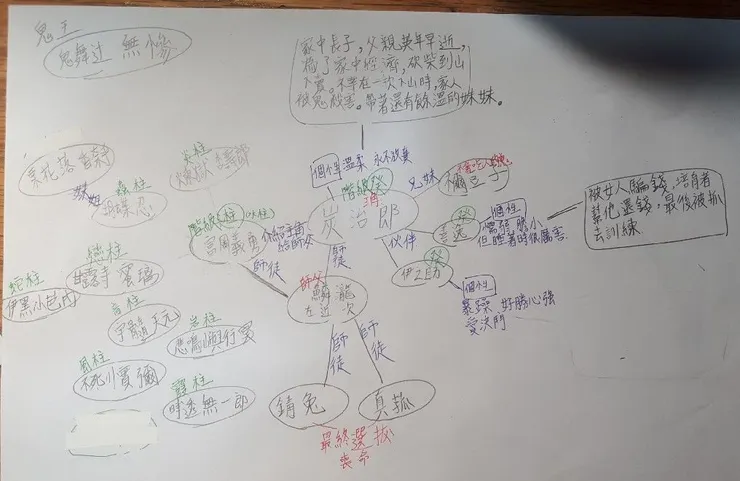 鬼王
鬼舞辻 無慘
家中長子,父親英年早逝,
擔了家中經濟,砍柴到山
下賣。不幸在一次下山時,家人
被鬼殺害。帶著還有餘溫的妹妹。
個性 溫柔 永不放棄
階級 癸
炭治郎
兄妹
禰豆子
伙伴
善逸
癸
個性
但睡著時很厲害
被女人騙錢,培育者
幫他還錢,最後被抓
去訓練
伊之助
癸
個性
暴躁 好勝心強
愛決鬥
炎柱
煉獄
姊妹
胡蝶忍
階級 柱
水柱
富岡義勇
師徒
師徒
師父
左近次
戀柱
甘露寺 蜜璃
蛇柱
伊黑小芭內
音柱
宇髓天元
岩柱
悲鳴嶼行冥
風柱
不死川實彌
霞柱
時透無一郎
師徒
師徒
錆兔
真菰
最終選拔
喪命